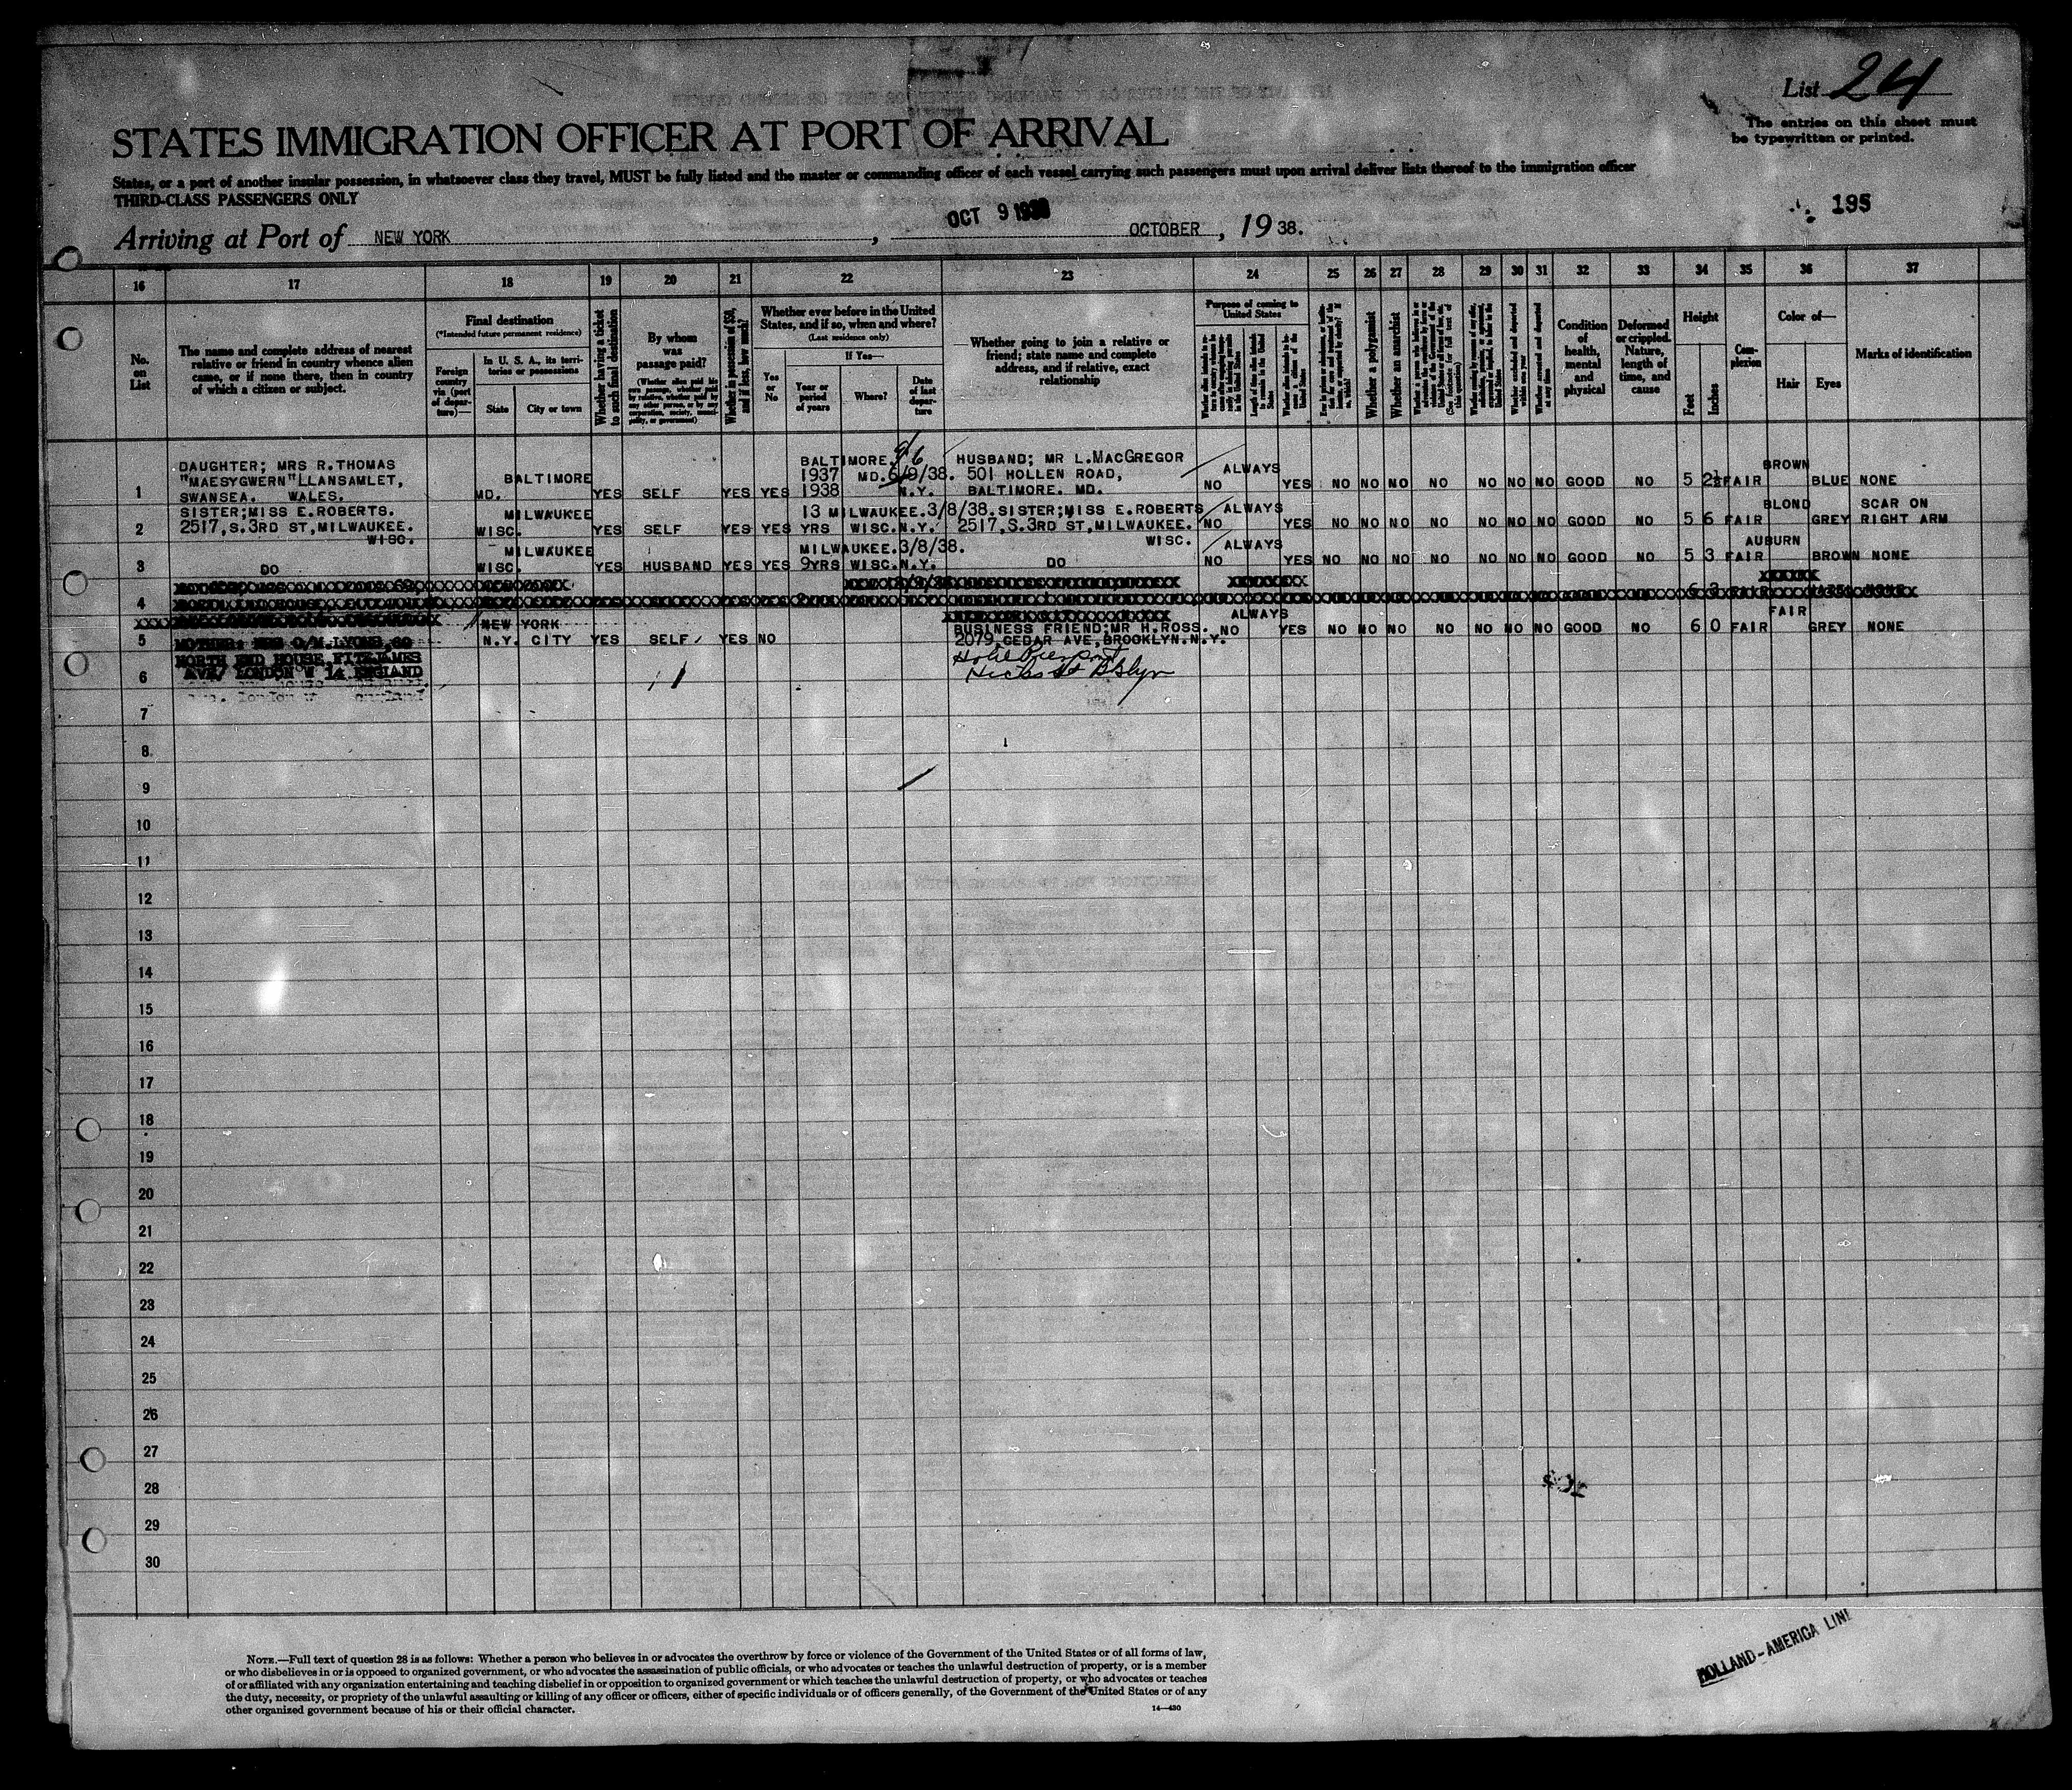 List 24
The entries on this sheet must
be typewritten or printed.
STATES IMMIGRATION OFFICER AT PORT OF ARRIVAL
States, or a port of another insular possession, in whatsoever class they travel, MUST be fully listed and the master or commanding officer of each vessel carrying such passengers must upon arrival deliver lists thereof to the immigration officer
THIRD-CLASS PASSENGERS ONLY
195
Arriving at Port of NEW YORK, OCT 9 1938 OCTOBER, 19 38.
16 17 18 19 20 21 22 23 24 25 26 27 28 29 30 31 32 33 34 35 36 37
No. on List
The name and complete address of nearest
relative or friend in country whence alien
came, or if none there, then in country
of which a citizen or subject.
Final destination
(*Intended future permanent residence)
Foreign country via (port of departure)—
In U. S. A., its territories or possessions
State
City or town
Whether having a ticket to such final destination
By whom was passage paid?
Whether in possession of $50, and if less, how much?
Whether ever before in the United
States, and if so, when and where?
(Last residence only)
Yes or No
If Yes—
Year or period of years
Where?
Date of last departure
Whether going to join a relative or
friend; state name and complete
address, and if relative, exact
relationship
Purpose of coming to
United States
Whether a polygamist
Whether an anarchist
Condition of health, mental and physical
Deformed or crippled. Nature, length of time, and cause
Height
Feet
Inches
Complexion
Color of—
Hair
Eyes
Marks of identification
1 DAUGHTER; MRS R.THOMAS
"MAESYGWERN" LLANSAMLET,
SWANSEA. WALES.
MD. BALTIMORE YES SELF YES YES 1937 1938 BALTIMORE. MD. 6/9/38. N.Y.
9/6
HUSBAND; MR L.MACGREGOR
501 HOLLEN ROAD,
BALTIMORE. MD.
NO ALWAYS YES NO NO NO NO NO NO NO GOOD NO 5 2½ FAIR BROWN BLUE NONE
2 SISTER;MISS E.ROBERTS.
2517,S.3RD ST,MILWAUKEE.
WISC.
WISC. MILWAUKEE YES SELF YES YES 13 YRS MILWAUKEE. WISC. 3/8/38. N.Y.
SISTER;MISS E.ROBERTS
2517,S.3RD ST,MILWAUKEE.
WISC.
NO ALWAYS YES NO NO NO NO NO NO NO GOOD NO 5 6 FAIR BLOND GREY SCAR ON RIGHT ARM
3 DO WISC. MILWAUKEE YES HUSBAND YES YES 9YRS MILWAUKEE. WISC. 3/8/38. N.Y. DO
NO ALWAYS YES NO NO NO NO NO NO NO GOOD NO 5 3 FAIR AUBURN BROWN NONE
4
5 MOTHER: MRS O/M.LYONS,69
NORTH END HOUSE,FITZJAMES
AVE/ LONDON W 14 ENGLAND
N.Y. NEW YORK CITY YES SELF YES NO
BUSINESS FRIEND;MR H.ROSS.
2079,CEDAR AVE,BROOKLYN.N.Y.
NO ALWAYS YES NO NO NO NO NO NO NO GOOD NO 6 0 FAIR FAIR GREY NONE
Hotel Pierpont
Hicks St Bklyn
6
7
8
9
10
11
12
13
14
15
16
17
18
19
20
21
22
23
24
25
26
27
28
29
30
NOTE.—Full text of question 28 is as follows: Whether a person who believes in or advocates the overthrow by force or violence of the Government of the United States or of all forms of law,
or who disbelieves in or is opposed to organized government, or who advocates the assassination of public officials, or who advocates or teaches the unlawful destruction of property, or is a member
of or affiliated with any organization entertaining and teaching disbelief in or opposition to organized government or which teaches the unlawful destruction of property, or who advocates or teaches
the duty, necessity, or propriety of the unlawful assaulting or killing of any officer or officers, either of specific individuals or of officers generally, of the Government of the United States or of any
other organized government because of his or their official character.
14—430
HOLLAND-AMERICA LINE